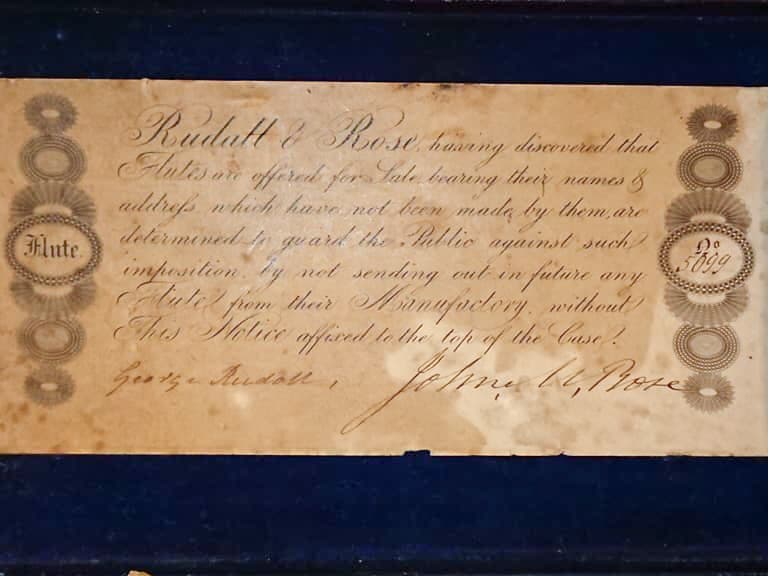 Rudall & Rose, having discovered that
Flutes are offered for Sale bearing their names &
addreſs, which have not been made, by them, are
determined to guard the Public against such
imposition, by not sending out in future any
Flute from their Manufactory, without
This Notice affixed to the top of the Case.
Flute.
No
5099
George Rudall,
John M, Rose